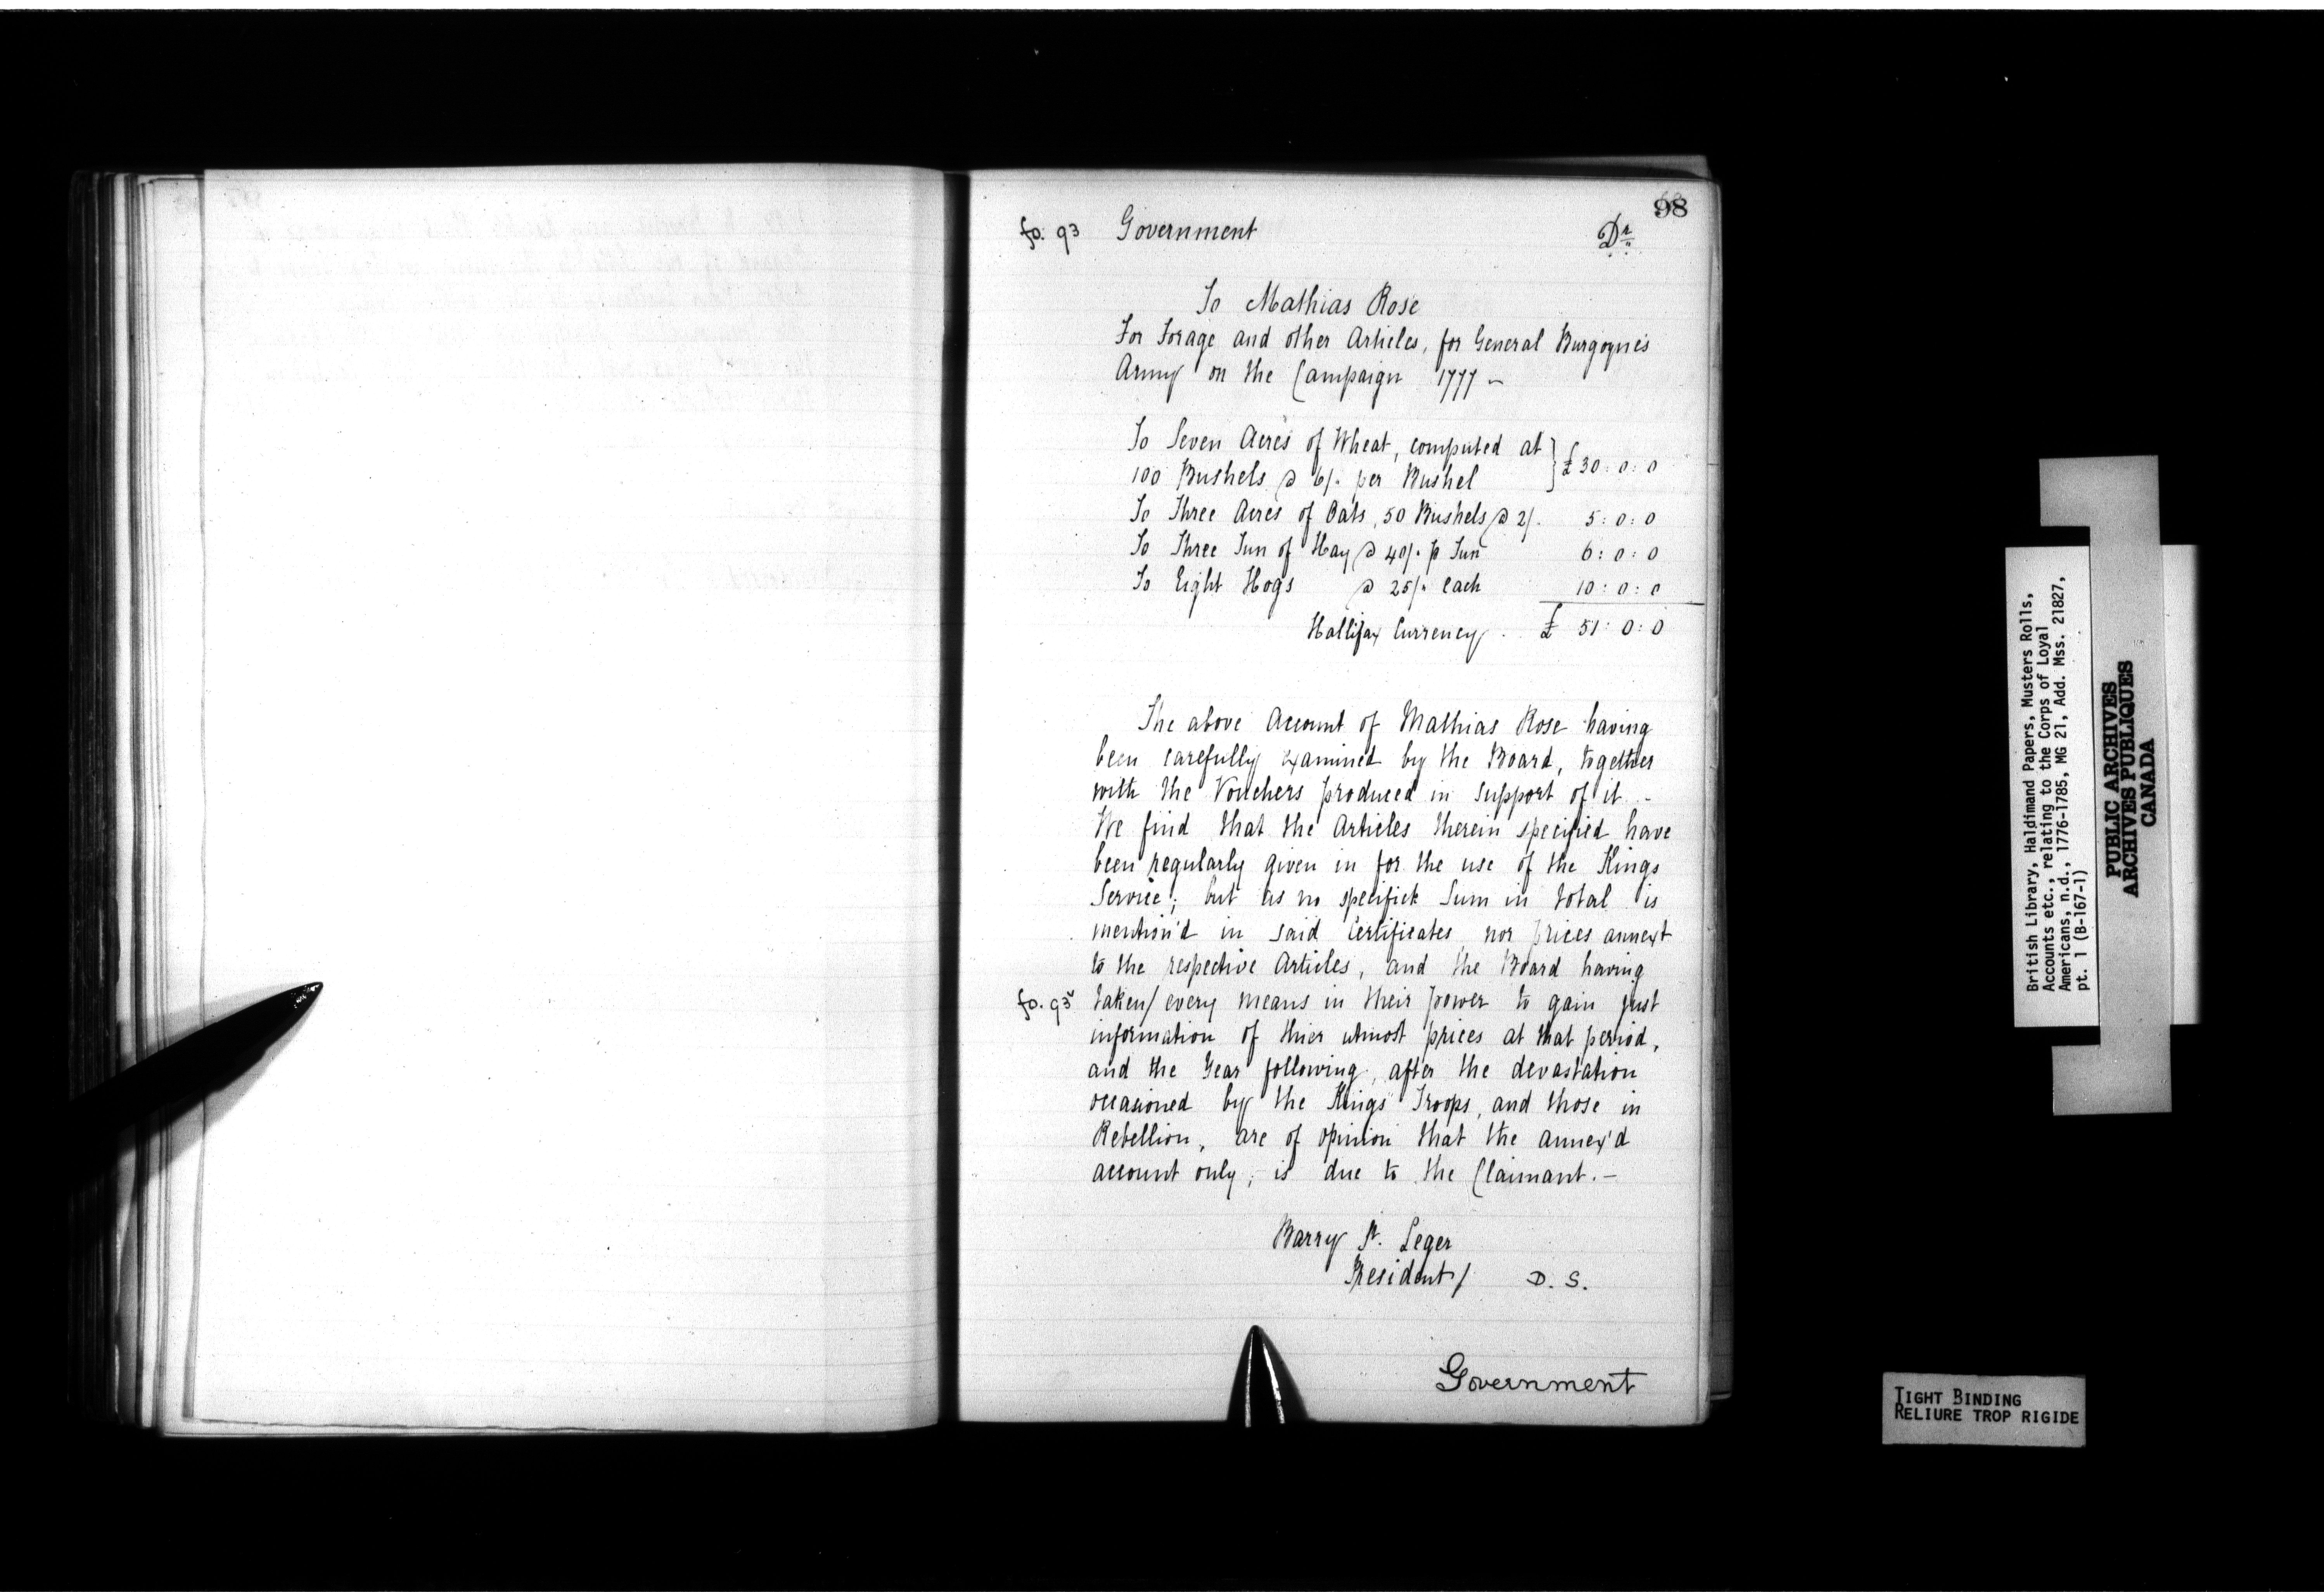 98
fo. 93 Government Dr.
To Mathias Rose
For Forage and other Articles, for General Burgoyne's
Army on the Campaign 1777 –
To Seven Acres of Wheat, computed at
100 Bushels @ 6/. per Bushel } £ 30 : 0 : 0
To Three Acres of Oats, 50 Bushels @ 2/. 5 : 0 : 0
To Three Tun of Hay @ 40/. p Tun 6 : 0 : 0
To Eight Hogs @ 25/. Each 10 : 0 : 0
Hallifax Currency . . £ 51 : 0 : 0
The above Account of Mathias Rose having
been carefully examined by the Board, together
with the Vouchers produced in support of it –
We find that the Articles therein specified have
been regularly given in for the use of the Kings
Service; but as no specifick Sum in total is
mention'd in said Certificates, nor prices annext
to the respective Articles, and the Board having
fo. 93v taken/ every means in their power to gain just
information of thier utmost prices at that period,
and the Year following, after the devastation
occasioned by the Kings Troops, and those in
Rebellion, are of opinion that the annex'd
account only, is due to the Claimant. –
Barry St. Leger
President/ D. S.
Government
British Library, Haldimand Papers, Musters Rolls,
Accounts etc., relating to the Corps of Loyal
Americans, n.d., 1776-1785, MG 21, Add. Mss. 21827,
pt. 1 (B-167-1)
PUBLIC ARCHIVES
ARCHIVES PUBLIQUES
CANADA
TIGHT BINDING
RELIURE TROP RIGIDE